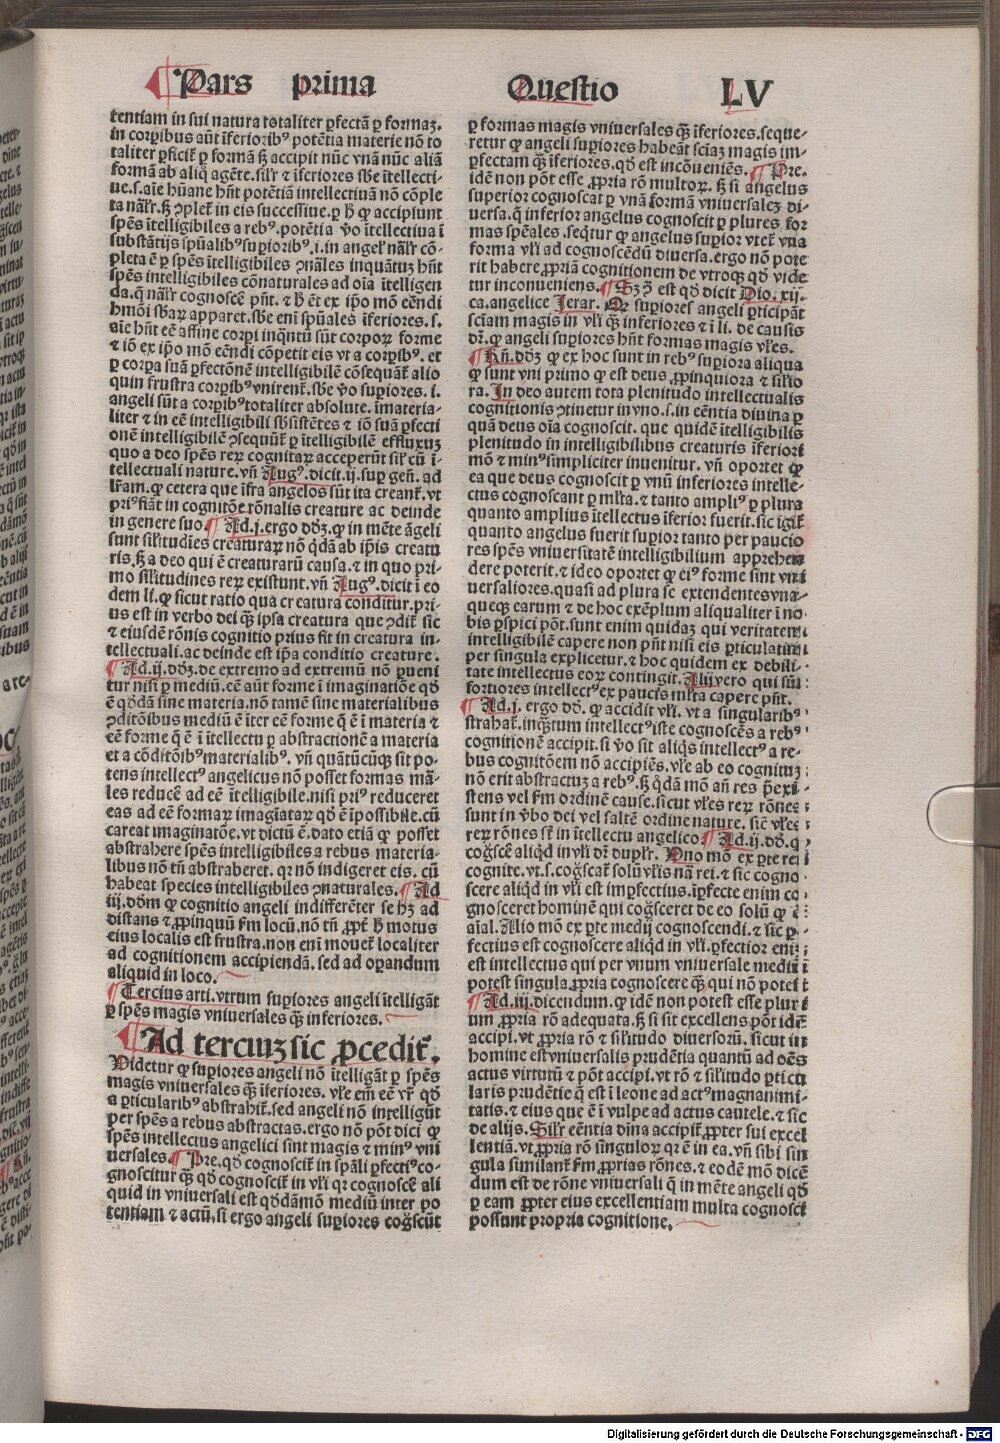 Pars prima Questio LV
tentiam in sui natura totaliter ꝑfectã ꝑ formaꝫ.
in corꝑibus aũt ĩferioribꝰ potẽtia materie nõ to
taliter ꝑficit̃ ꝑ formã sꝫ accipit nũc vnã nũc aliã
formã ab aliq̃ agẽte. silr̃ ⁊ ĩferiores sb̃e ĩtellecti-
ue. s. aĩe hũane hñt potẽtiã intellectiuã nõ cõple
ta nãlr̃. sꝫ ꝯplet̃ in eis successiue. ꝑ h̃ ꝙ accipiunt
spẽs ĩtelligibiles a rebꝰ. potẽtia v̾o ĩtellectiua ĩ
substãtijs spũalibꝰ suꝑioribꝰ. i. in angel̃ nãlr̃ cõ-
pleta ẽ ꝑ spẽs ĩtelligibiles ꝯnãles inquãtuꝫ hñt
spẽs intelligibiles cõnaturales ad oĩa ĩtelligen
da. q̃ nãlr̃ cognoscẽ pñt. ⁊ h̃ ẽt ex ip̃o mõ eẽndi
hmõi sb̃aꝝ apparet. sb̃e eni spũales ĩferiores. s.
aĩe hñt eẽ affine corꝑi inq̃ntũ sũt corpoꝝ forme
⁊ iõ ex ip̃o mõ eẽndi cõpetit eis vt a corꝑibꝰ. et
ꝑ corꝑa suã ꝑfectõnẽ intelligibilẽ cõsequãt̃ alio
quin frustra corꝑibꝰ vnirent̃. sb̃e v̾o suꝑiores. i.
angeli sũt a corꝑibꝰ totaliter absolute. ĩmateria-
liter ⁊ in eẽ intelligibili sb̃sistẽtes ⁊ iõ suã ꝑfecti
onẽ intelligibilẽ ꝯsequũt̃ ꝑ ĩtelligibilẽ effluxuꝫ
quo a deo spẽs reꝝ cognitaꝝ acceperũt sil̃ cũ ĩ-
tellectuali nature. vñ Augꝰ. dicit. ij. suꝑ geñ. ad
lr̃am. ꝙ cetera que ĩfra angelos sũt ita creant̃. vt
priꝰ fiãt in cognitõe rõnalis creature ac deinde
in genere suo. Ad. j. ergo d̾ꝫ. ꝙ in mẽte ãgeli
sunt sil̃itudĩes creaturaꝝ nõ q̃dã ab ip̃is creatu
ris. sꝫ a deo qui ẽ creaturarũ causa. ⁊ in quo pri-
mo sil̃itudines reꝝ existunt. vñ Augꝰ. dicit ĩ eo
dem li. ꝙ sicut ratio qua creatura conditur. pri-
us est in verbo dei q̃ʒ ip̃sa creatura que ꝯdit̃ sic
⁊ eiusdẽ rõnis cognitio prius fit in creatura in-
tellectuali. ac deinde est ip̃a conditio creature.
Ad. ij. d̾ꝫ. de extremo ad extremũ nõ ꝑueni
tur nisi ꝑ mediũ. eẽ aũt forme ĩ imaginatiõe qd̾
ẽ q̃dã sine materia. nõ tamẽ sine materialibus
ꝯditõibus mediũ ẽ ĩter eẽ forme q̃ ẽ ĩ materia ⁊
eẽ forme q̃ ẽ ĩ ĩtellectu ꝑ abstractionẽ a materia
et a cõditõibꝰ materialibꝰ. vñ quãtũcũqꝫ sit po-
tens intellectꝰ angelicus nõ posset formas mã-
les reducẽ ad eẽ ĩtelligibile. nisi priꝰ reduceret
eas ad eẽ formaꝝ imagĩataꝝ qd̾ ẽ ĩpossibile. cũ
careat imaginatõe. vt dictũ ẽ. dato etiã ꝙ posset
abstrahere spẽs intelligibiles a rebus materia-
libus nõ tñ abstraheret. qꝛ nõ indigeret eis. cũ
habeat species intelligibiles ꝯnaturales. Ad
iij. d̾om ꝙ cognitio angeli indifferẽter se hꝫ ad
distans ⁊ ꝓpinquũ fm̃ locũ. nõ tñ ꝓpt̾ h̃ motus
eius localis est frustra. non eni mouet̃ localiter
ad cognitionem accipiendã. sed ad oꝑandum
aliquid in loco.
Tercius arti. vtrum suꝑiores angeli ĩtelligãt
ꝑ spẽs magis vniuersales q̃ʒ inferiores.
Ad terciuꝫ sic ꝓcedit̃.
Videtur ꝙ suꝑiores angeli nõ ĩtelligãt ꝑ spẽs
magis vniuersales q̃ʒ ĩferiores. vl̃e em̃ eẽ vr̃ qd̾
a ꝑticularibꝰ abstrahit̃. sed angeli nõ intelligũt
per spẽs a rebus abstractas. ergo nõ põt dici ꝙ
spẽs intellectus angelici sint magis ⁊ minꝰ vni
uersales. Pre. qd̾ cognoscit̃ in spãli ꝑfectiꝰ co-
gnoscitur q̃ʒ qd̾ cognoscit̃ in vl̃i qꝛ cognoscẽ ali
quid in vniuersali est qd̾dãmõ mediũ inter po
tentiam ⁊ actũ. si ergo angeli suꝑiores cog̃scũt
ꝑ formas magis vniuersales q̃ʒ ĩferiores. seque-
retur ꝙ angeli suꝑiores habeãt sciaꝫ magis im-
ꝑfectam q̃ʒ ĩferiores. qd̾ est incõueniẽs. Pre.
idẽ non põt esse ꝓpria rõ multoꝝ. sꝫ si angelus
superior cognoscat ꝑ vnã formã vniuersaleꝫ di-
uersa. q̃ inferior angelus cognoscit ꝑ plures for
mas spẽales. seq̃tur ꝙ angelus suꝑior vtet̃ vna
forma vl̃i ad cognoscẽdũ diuersa. ergo nõ pote
rit habere ꝓpriã cognitionem de vtroqꝫ qd̾ vide
tur inconueniens. Sꝫ ꝯ̃ est qd̾ dicit Dio. xij.
ca. angelice Ierar. Qꝛ suꝑiores angeli ꝑticipãt
sciam magis in vl̃i q̃ʒ inferiores ⁊ ĩ li. de causis
dr̃. ꝙ angeli suꝑiores hñt formas magis vl̃es.
Rñ. d̾ꝫ ꝙ ex hoc sunt in rebꝰ suꝑiora aliqua
ꝙ sunt vni primo ꝙ est deus ꝓpinquiora ⁊ sil̃io
ra. In deo autem tota plenitudo intellectualis
cognitionis ꝯtinetur in vno. s. in eẽntia diuina ꝑ
quã deus oĩa cognoscit. que quidẽ ĩtelligibilis
plenitudo in intelligibilibus creaturis ĩferiori
mõ ⁊ minꝰ simpliciter inuenitur. vñ oportet ꝙ
ea que deus cognoscit ꝑ vnũ inferiores intelle-
ctus cognoscant ꝑ ml̃ta. ⁊ tanto ampliꝰ ꝑ plura
quanto amplius ĩtellectus ĩferior fuerit. sic igit̃
quanto angelus fuerit suꝑior tanto per paucio
res spẽs vniuersitatẽ intelligibilium apprehen
dere poterit. ⁊ ideo oportet ꝙ eiꝰ forme sint vni
uersaliores. quasi ad plura se extendentes vna-
queqꝫ earum ⁊ de hoc exẽplum aliqualiter ĩ no
bis ꝑspici põt. sunt enim quidaꝫ qui veritatem
intelligibilẽ capere non pñt nisi eis ꝑticulatim
per singula explicetur. ⁊ hoc quidem ex debili-
tate intellectus eoꝝ contingit. Alij vero qui sũt
fortiores intellectꝰ ex paucis ml̃ta capere pñt.
Ad. j. ergo d̾o. ꝙ accidit vl̃i. vt a singularibꝰ
strahat̃. inq̃ʒtum intellectꝰ iste cognoscẽs a rebꝰ
cognitionẽ accipit. si v̾o sit aliq̃s intellectꝰ a re-
bus cognitõem nõ accipiẽs. vl̃e ab eo cognituꝫ
nõ erit abstractuꝫ a rebꝰ. sꝫ q̃dã mõ añ res p̃exi
stens vel fm̃ ordinẽ cause. sicut vl̃es reꝝ rõnes
sunt in v̾bo dei vel saltẽ ordine nature. sic vl̃es
reꝝ rõnes st̃ in ĩtellectu angelico. Ad. ij. d̾o. ꝙ
cog̃scẽ aliq̃d in vl̃i dr̃ duplr̃. Vno mõ ex ꝑte rei
cognite. vt. s. cog̃scat̃ solũ vl̃is nã rei. ⁊ sic cogno
scere aliq̃d in vl̃i est imꝑfectius. ĩꝑfecte enim co
gnosceret hominẽ qui cog̃sceret de eo solũ ꝙ ẽ
aĩal. Alio mõ ex ꝑte medij cognoscendi. ⁊ sic ꝑ-
fectius est cognoscere aliq̃d in vl̃i. ꝑfectior eniꝫ
est intellectus qui per vnum vniuersale mediũ
potest singula ꝓpria cognoscere q̃ʒ qui nõ potest
Ad. iij. dicendum. ꝙ idẽ non potest esse pluri
um ꝓpria rõ adequata. sꝫ si sit excellens põt idẽ
accipi. vt ꝓpria rõ ⁊ sil̃itudo diuersorũ. sicut in
homine est vniuersalis prudẽtia quantũ ad oẽs
actus virtutũ ⁊ põt accipi. vt rõ ⁊ sil̃itudo ꝑticu
laris prudẽtie q̃ est ĩ leone ad actꝰ magnanimi-
tatis. ⁊ eius que ẽ ĩ vulpe ad actus cautele. ⁊ sic
de alijs. Silr̃ eẽntia diña accipit̃. ꝓpter sui excel
lentiã. vt ꝓpria rõ singuloꝝ qꝛ ẽ in ea. vñ sibi sin
gula similant̃ fm̃ ꝓprias rõnes. ⁊ eodẽ mõ dicẽ
dum est de rõne vniuersali q̃ in mẽte angeli qd̾
ꝑ eam ꝓpter eius excellentiam multa cognosci
possunt propria cognitione.
Digitalisierung gefördert durch die Deutsche Forschungsgemeinschaft - DFG